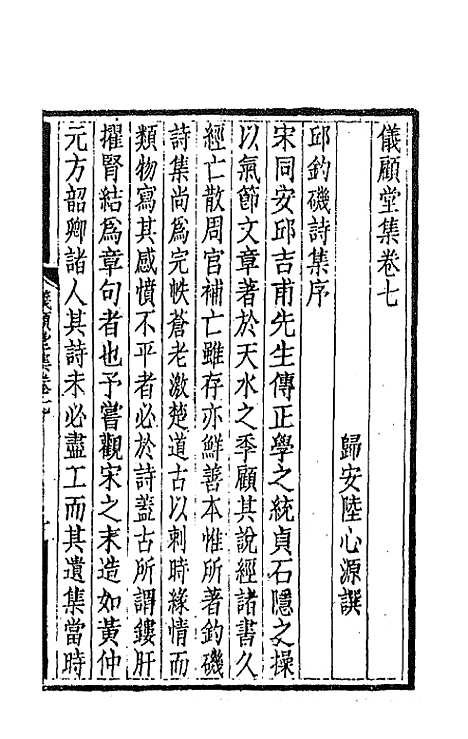 儀顧堂集卷七
歸安陸心源譔
邱釣磯詩集序
宋同安邱吉甫先生傳正學之統貞石隱之操
以氣節文章著於天水之季顧其說經諸書久
經亡散周官補亡雖存亦鮮善本惟所著釣磯
詩集尚爲完帙蒼老激楚道古以刺時緣情而
類物寫其感憤不平者必於詩蓋古所謂鏤肝
擢腎結爲章句者也予嘗觀宋之末造如黃仲
元方韶卿諸人其詩未必盡工而其遺集當時